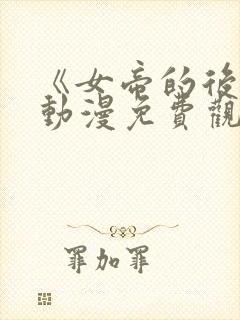 《女帝的後
動漫免費觀
罪加罪